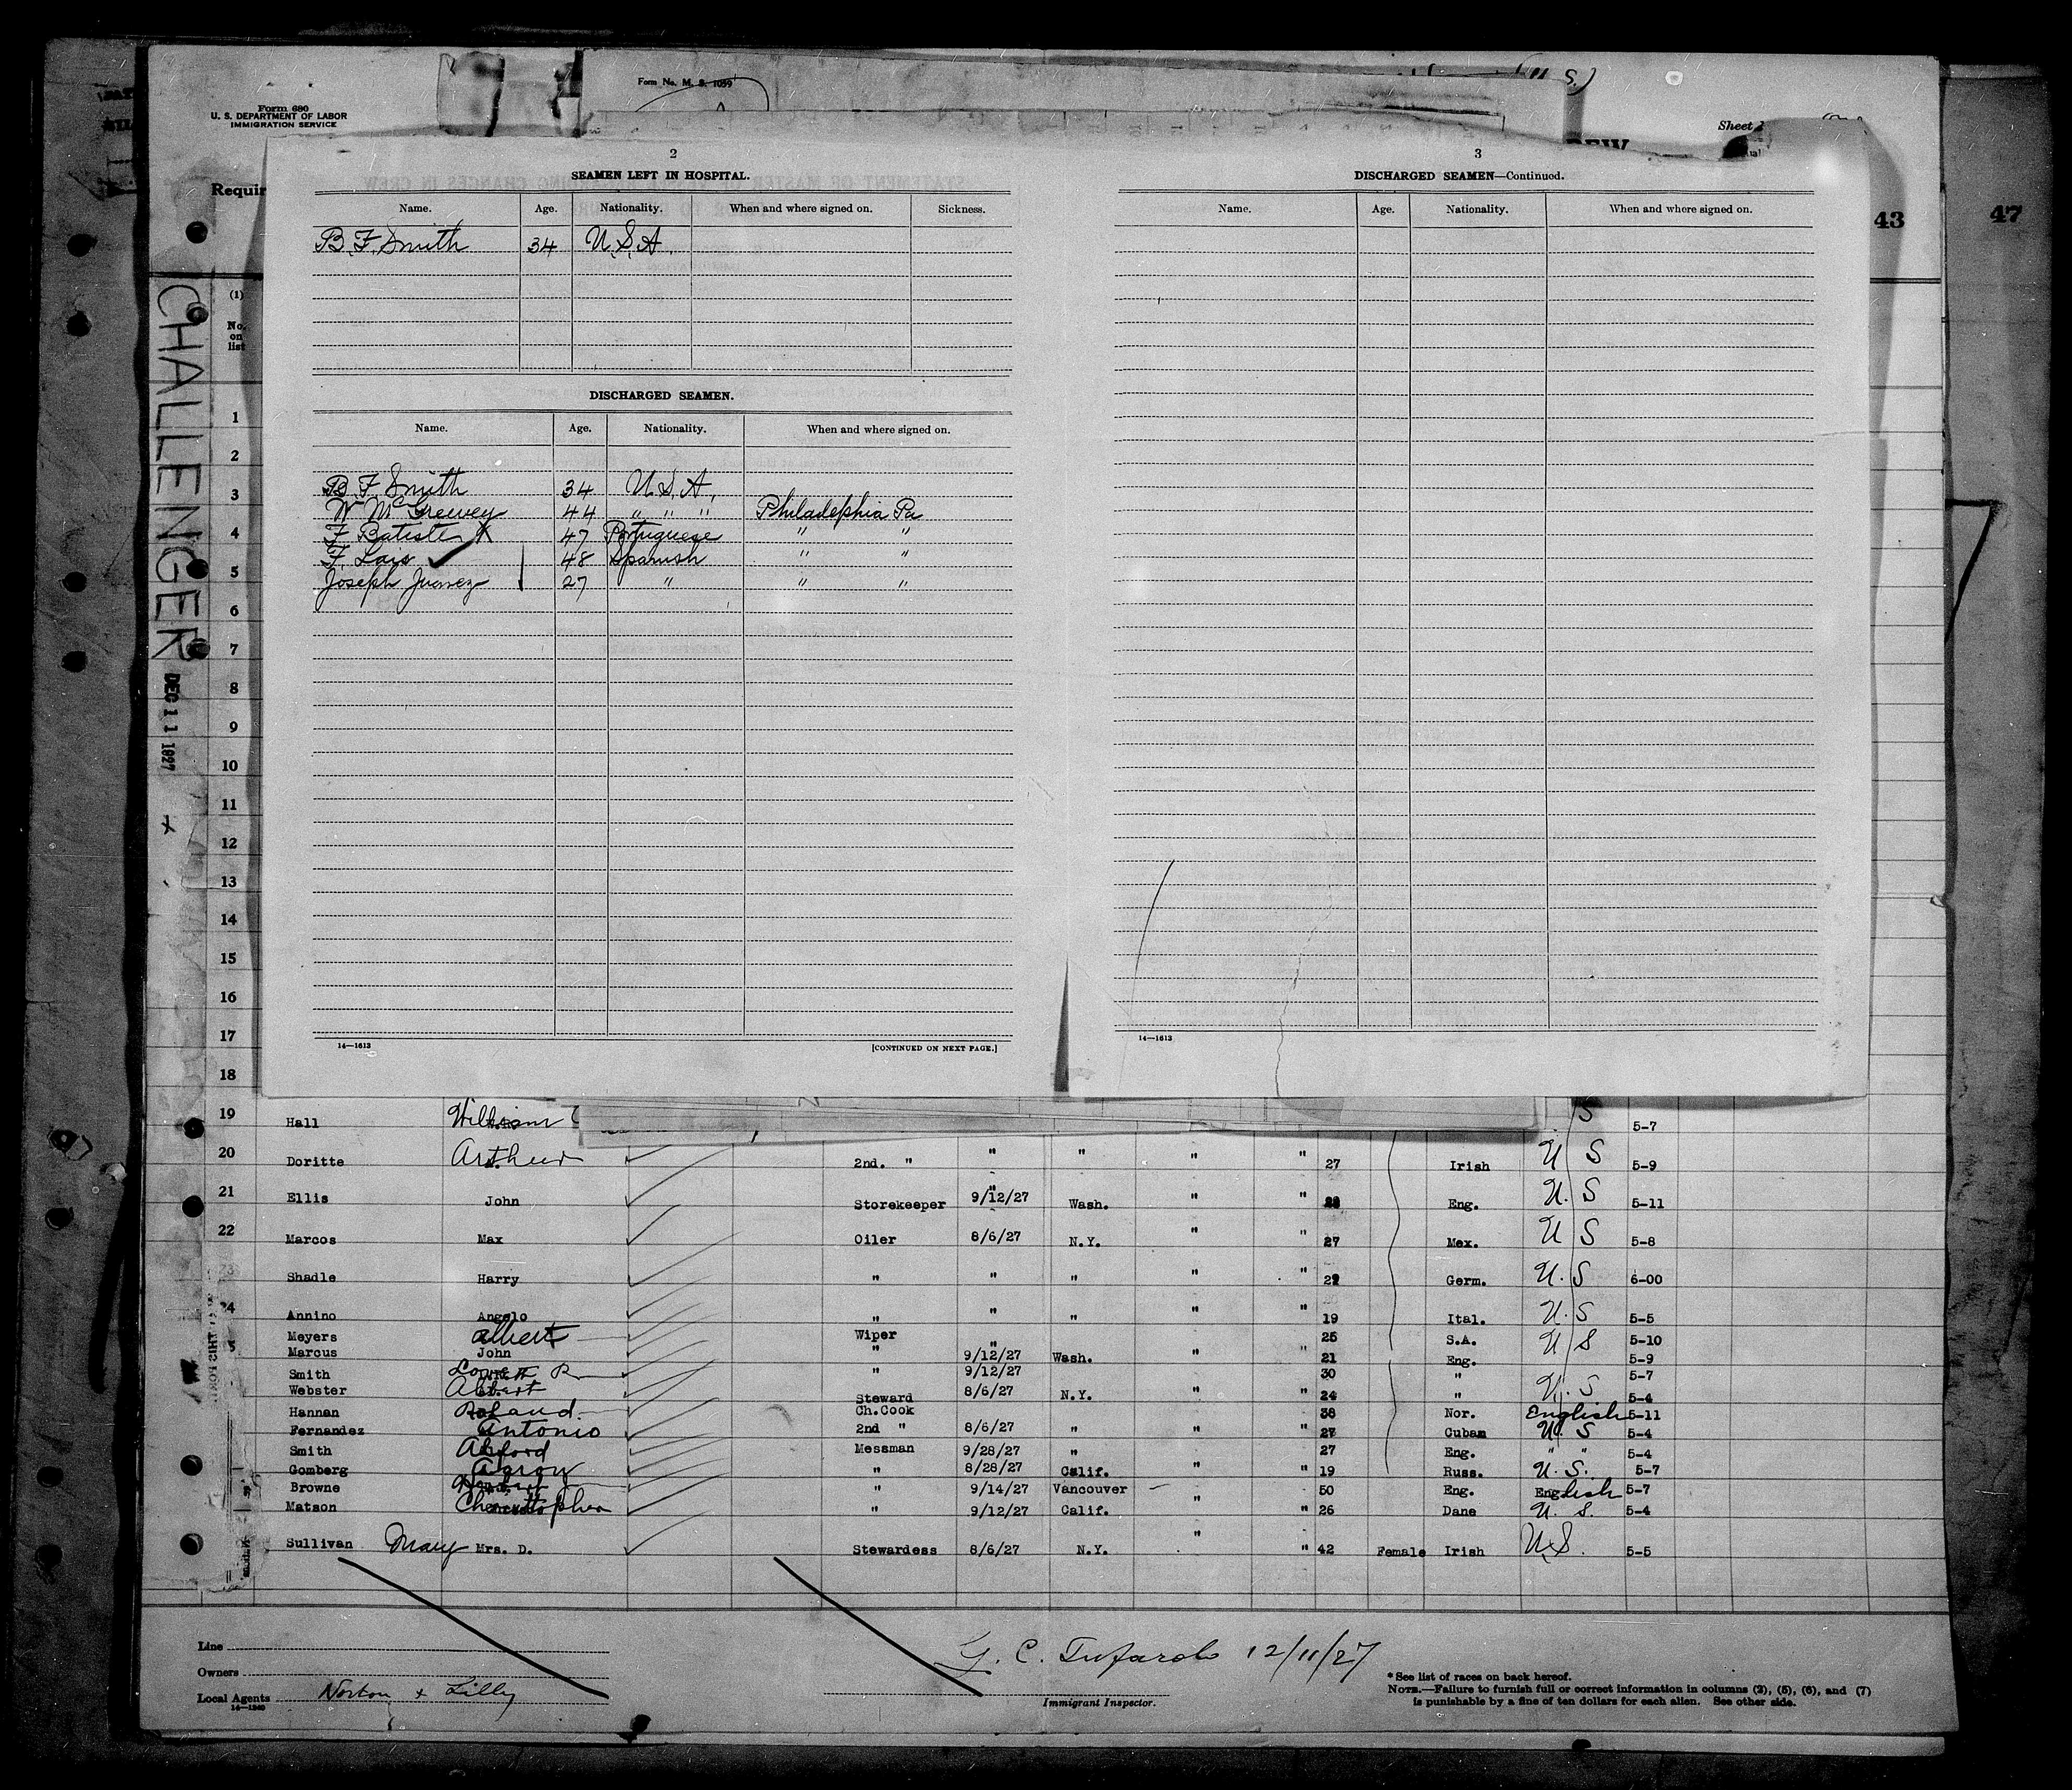 Form No. M. S. 1059
S.)
Form 680
U. S. DEPARTMENT OF LABOR
IMMIGRATION SERVICE
Sheet
Requir
43
47
CHALLENGER DEC 11 1927
(1)
No. on list
2
SEAMEN LEFT IN HOSPITAL.
Name. Age. Nationality. When and where signed on. Sickness.
B. F. Smith 34 U.S.A.
DISCHARGED SEAMEN.
Name. Age. Nationality. When and where signed on.
B. F. Smith 34 U.S.A.
W McGreevey 44 " " " Philadelphia Pa
F Batiste X 47 Portuguese " "
F. Lais ✓ 48 Spanish " "
Joseph Juarez 27 " " "
14—1613 [CONTINUED ON NEXT PAGE.]
3
DISCHARGED SEAMEN—Continued.
Name. Age. Nationality. When and where signed on.
14—1613
1
2
3
4
5
6
7
8
9
10
11
12
13
14
15
16
17
18
19 Hall William S 5-7
20 Doritte Arthur 2nd. " " " " " 27 Irish U S 5-9
21 Ellis John Storekeeper 9/12/27 Wash. " " Eng. U. S 5-11
22 Marcos Max Oiler 8/6/27 N.Y. " " 27 Mex. U S 5-8
23 Shadle Harry " " " " " Germ. U. S 6-00
24 Annino Angelo " " " " " 19 Ital. U. S 5-5
Meyers Albert Wiper " 25 S.A. U S 5-10
Marcus John " 9/12/27 Wash. " " 21 Eng. 5-9
Smith " 9/12/27 30 " 5-7
Webster Albert Steward 8/6/27 N.Y. " " 24 " U. S 5-4
Hannan Roland Ch.Cook 38 Nor. English 5-11
Fernandez Antonio 2nd " 8/6/27 " " " 27 Cuban U. S 5-4
Smith Alford Messman 9/28/27 " 27 Eng. " " 5-4
Gomberg Aaron " 8/28/27 Calif. " " 19 Russ. U. S. 5-7
Browne " 9/14/27 Vancouver 50 Eng. English 5-7
Matson Christopher " 9/12/27 Calif. " " 26 Dane U. S. 5-4
Sullivan Mary Mrs. D. Stewardess 8/6/27 N.Y. " " 42 Female Irish U.S. 5-5
Line
Owners
Local Agents Norton & Lilly
14—1240
G. C. Tufarolo 12/11/27
Immigrant Inspector.
* See list of races on back hereof.
NOTE.—Failure to furnish full or correct information in columns (2), (5), (6), and (7)
is punishable by a fine of ten dollars for each alien. See other side.